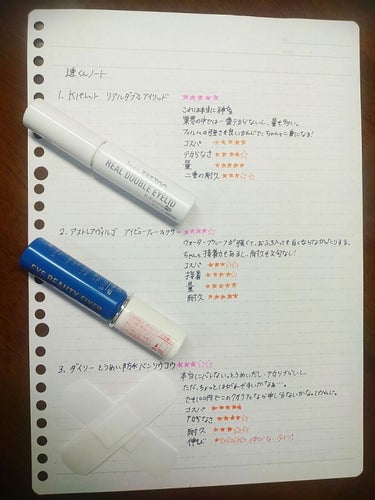 速くんノート
1. Kパレット リアルダブルアイリッド ★★★★★
これは本当に神
業界の中では一番テカらないし、量も多い。
フィルムの強さも良いかんじで、ちゃんと二重になる!
コスパ ★★★★★
テカらなさ ★★★★☆
量 ★★★★★
二重の耐久 ★★★★☆
TATTOO
REAL DOUBLE EYELID
2. アストレア ヴィルゴ アイビューティーフィクサー ★★★★☆
ウォータープルーフが強くて、おふろ入っても白くならなかんじする。
ちゃんと接着力もあるし、耐久も文句なし!
コスパ ★★★☆☆
接着 ★★★★☆
量 ★★★★★
耐久 ★★★★★
EYE BEAUTY FIXER
3. ダイソー とうめい防水バンソウコウ ★★★☆☆
本当にバレない。とうめいだし、テカリずらいし。
ただ、ちょっとはがれやすいかなぁ…。
でも100円でこのクオリティなら申し分ないかな。ってかんじ。
コスパ ★★★★★
テカらなさ ★★★★☆
耐久 ★★★☆☆
伸び ★☆☆☆☆